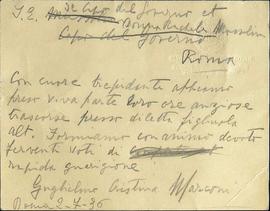 S.E. Il Capo del Governo et
Donna Rachele Mussolini
Capo del Governo
Roma
Con cuore trepidante abbiamo
preso viva parte loro ore ansiose
trascorse presso diletta figliuola
alt. Formiamo con animo devoto
fervente voti di
rapida guarigione
Guglielmo Cristina Marconi
Roma 2-7-36